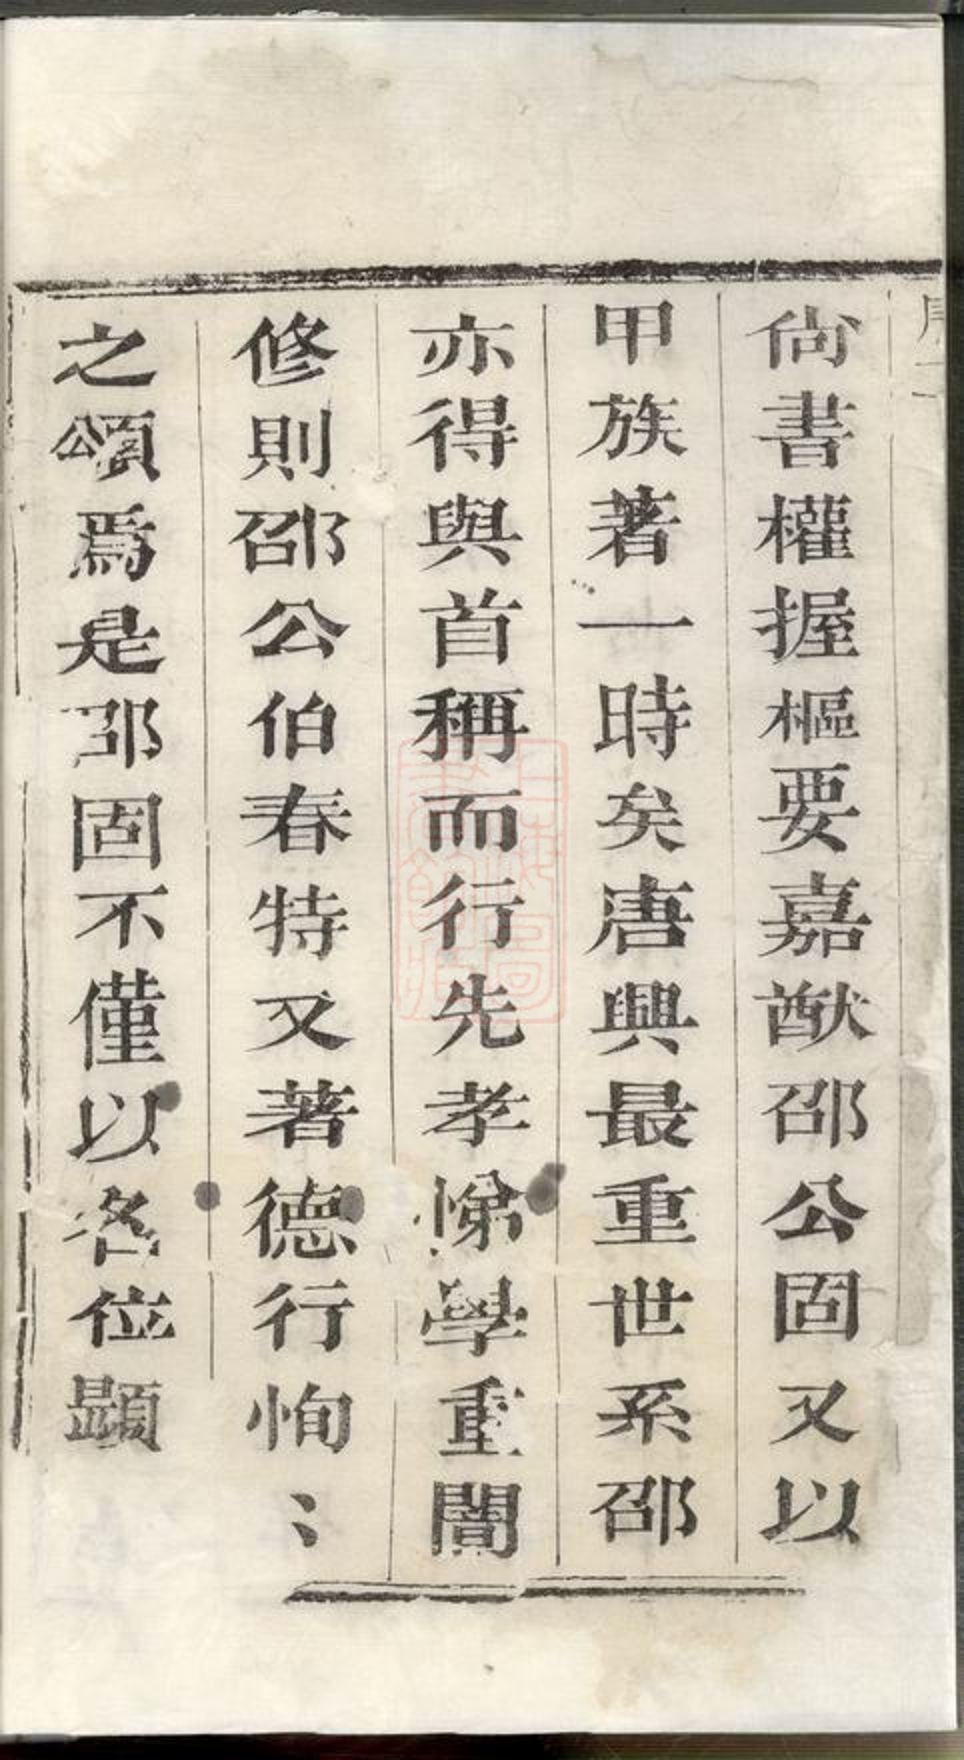 尚書權握樞要嘉猷邵公固又以
甲族著一時矣唐興最重世系邵
亦得與首稱而行先孝悌學重闇
修則邵公伯春特又著德行恂〻
之頌焉是邵固不僅以名位顯